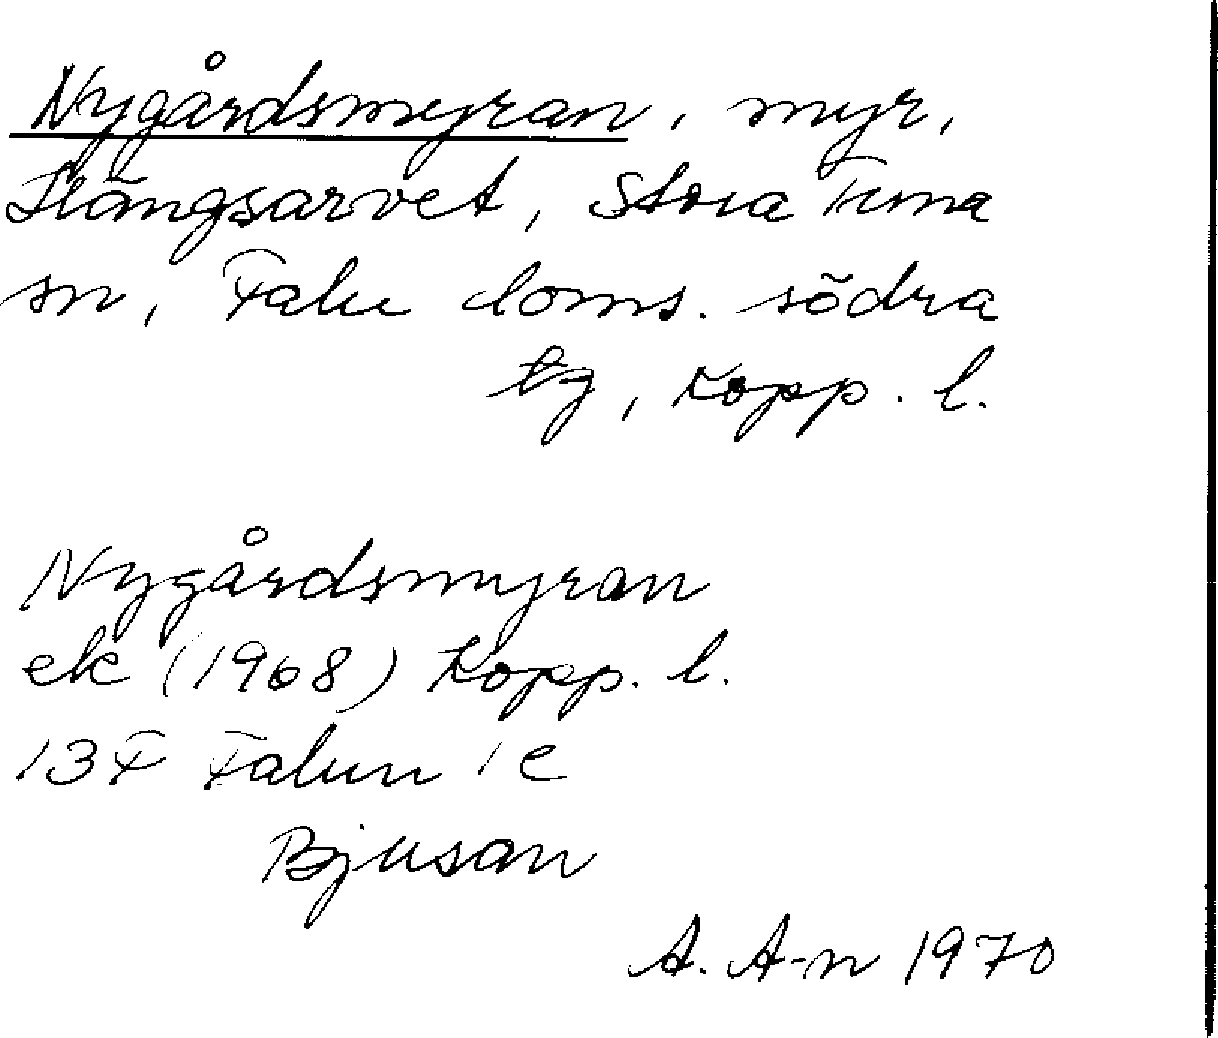 Nygårdsmyran, myr,
Slängsarvet, Stora Tuna
sn, Falu doms. södra
tg, Kopp. l.
Nygårdsmyran
ek (1968) Kopp. l.
13F Falun 1c
Bjusan
A. A-n 1970